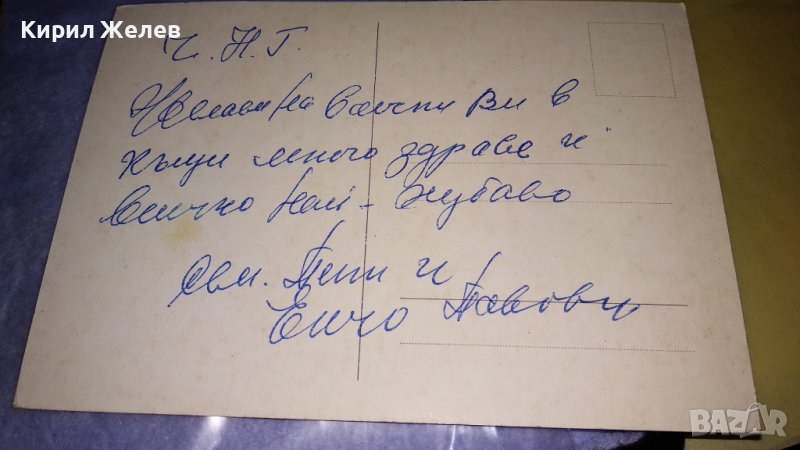 Кирил Желев
Ч.Н.Г.
Желая на всички Ви в
къщи много здраве и
всичко най-хубаво
сем. Пепи и
Енчо
BAZAR